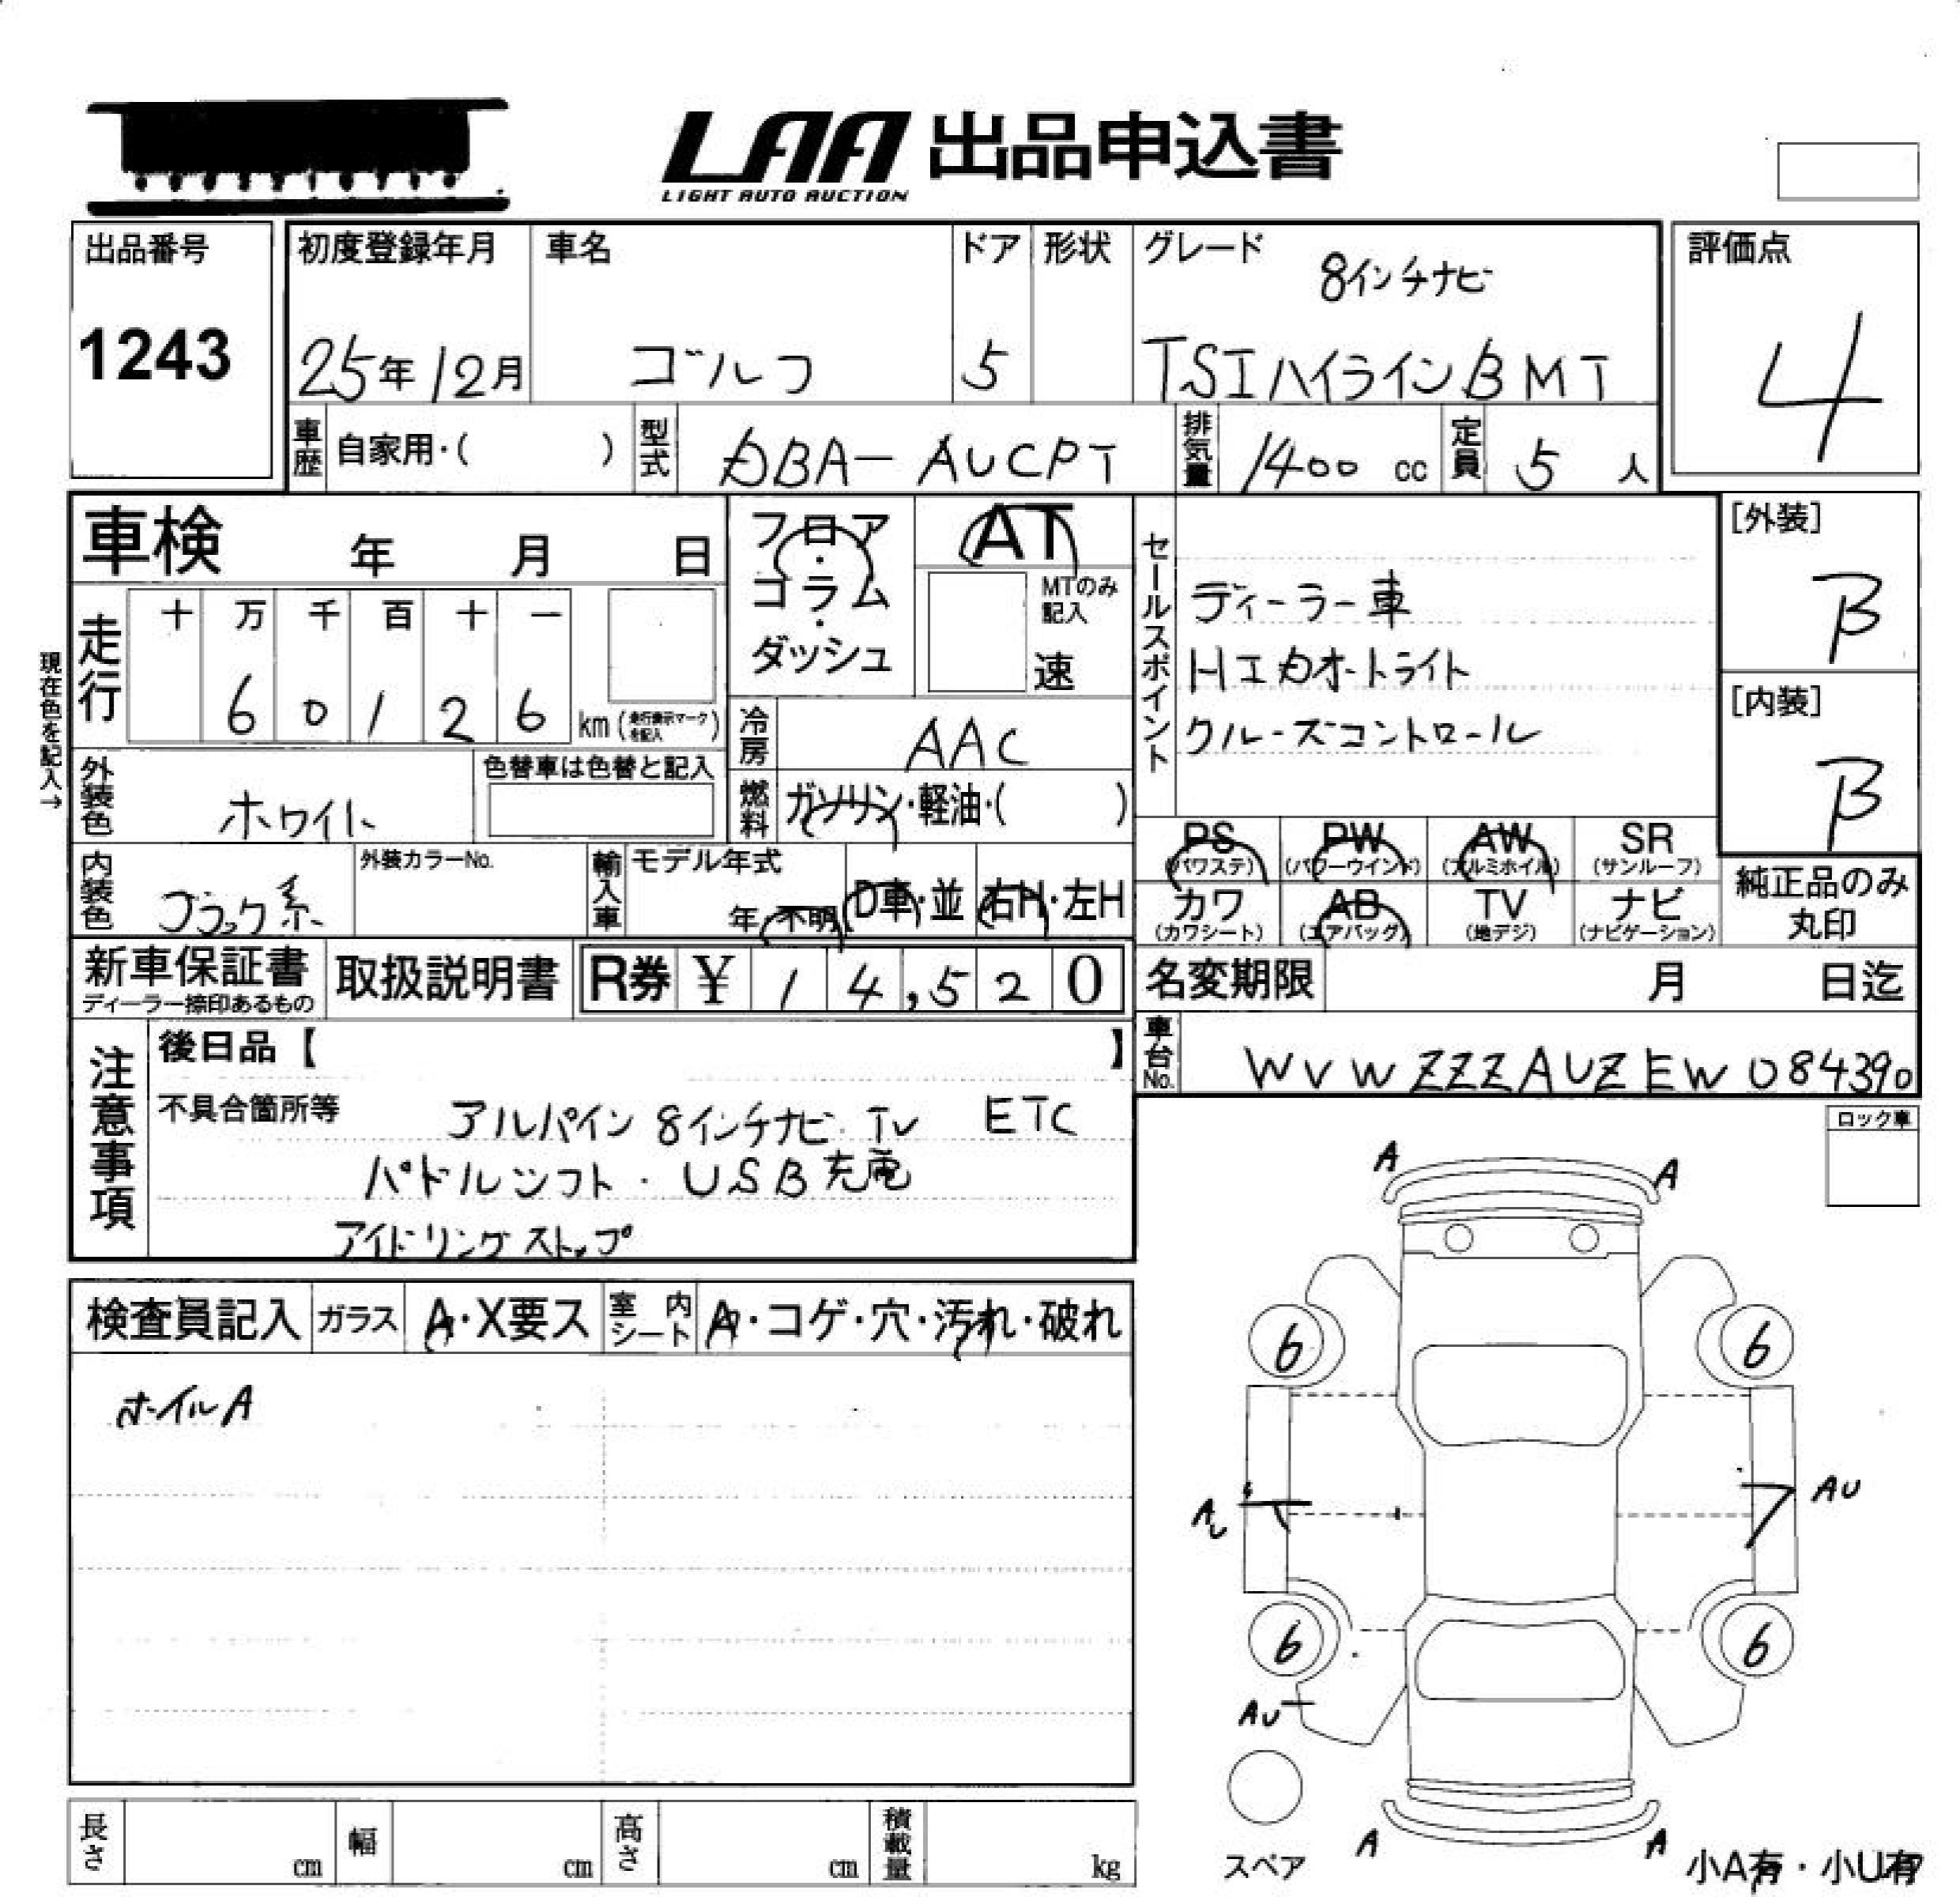 LAA 出品申込書
LIGHT AUTO AUCTION
出品番号
1243
初度登録年月
25年12月
車名
ゴルフ
ドア
5
形状
グレード
8インチナビ
TSIハイラインBMT
評価点
4
車歴 自家用・( )
型式 DBA-AUCPT
排気量 1400 cc
定員 5 人
車検 年 月 日
フロア・コラム・ダッシュ
AT
MTのみ記入
速
現在色を記入→
走行
十 万 千 百 十 一
6 0 1 2 6 km (走行表示マークを記入)
冷房 AAC
外装色 ホワイト
色替車は色替と記入
燃料 ガソリン・軽油・( )
内装色 ブラック系
外装カラーNo.
輸入車 モデル年式
年・不明 D車・並 右H・左H
セールスポイント
ディーラー車
HIDオートライト
クルーズコントロール
[外装]
B
[内装]
B
PS (パワステ)
PW (パワーウインド)
AW (アルミホイル)
SR (サンルーフ)
カワ (カワシート)
AB (エアバッグ)
TV (地デジ)
ナビ (ナビゲーション)
純正品のみ
丸印
新車保証書
ディーラー捺印あるもの
取扱説明書
R券 ¥ 1 4,5 2 0
名変期限 月 日迄
車台No. WVWZZZAUZEW084390
注意事項
後日品【 】
不具合箇所等
アルパイン 8インチナビ・TV ETC
パドルシフト・USB充電
アイドリングストップ
ロック車
検査員記入 ガラス A・X要ス 室内シート A・コゲ・穴・汚れ・破れ
ホイルA
A A
6 6
AU
6 6
AU
スペア
A A
小A有・小U有
長さ cm 幅 cm 高さ cm 積載量 kg